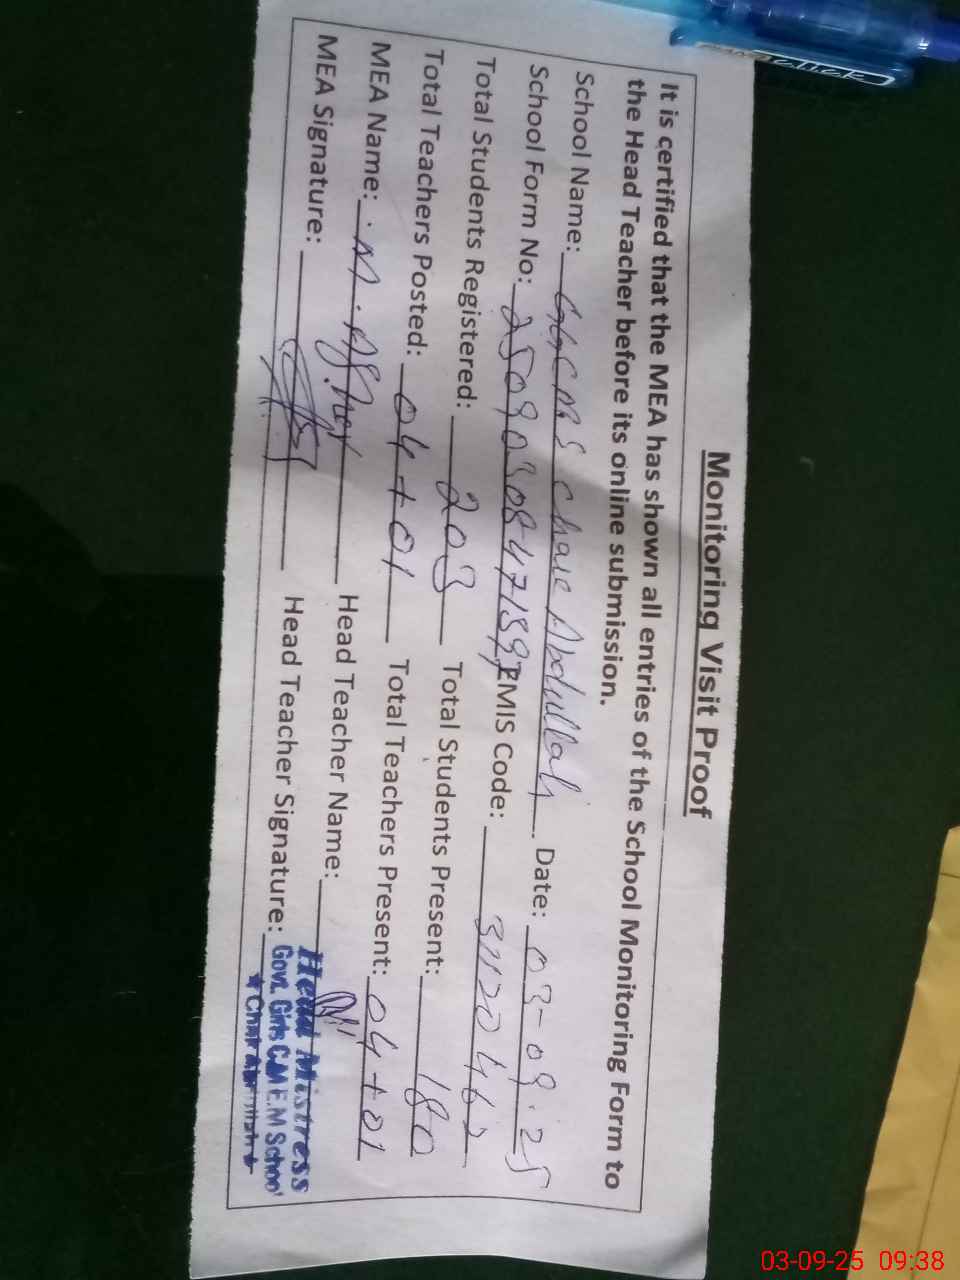 Monitoring Visit Proof
It is certified that the MEA has shown all entries of the School Monitoring Form to
the Head Teacher before its online submission.
School Name: GGCMS Chak Abdullah. Date: 03-09-25
School Form No: EMIS Code: 31120462
Total Students Registered: 203 Total Students Present: 180
Total Teachers Posted: 04+01 Total Teachers Present: 04+01
MEA Name: Head Teacher Name:
MEA Signature: Head Teacher Signature:
Head Mistress
Govt. Girls C.M E.M School
click
03-09-25 09:38